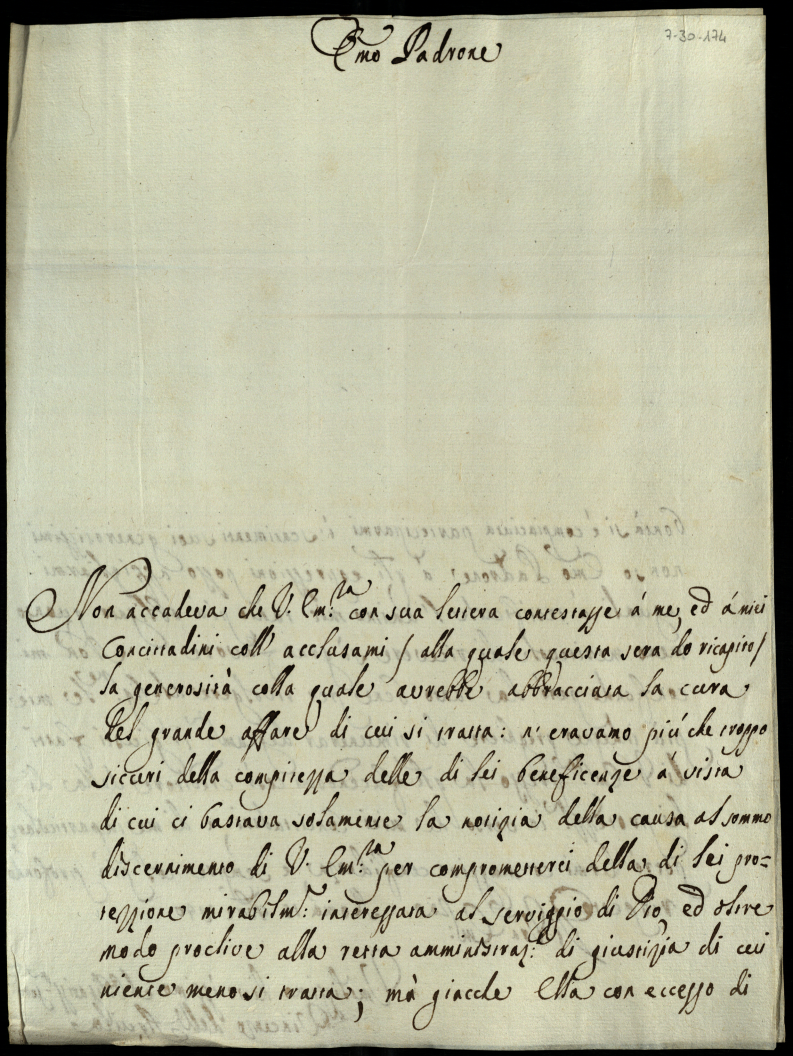 7-30-174
Emo Padrone
Non accadeva che V. Em.za con sua lettera contestasse à me, ed à miei
Concittadini coll' acclusami / alla quale questa sera do ricapito /
la generosità colla quale avrebbe abbracciata la cura
del grande affare di cui si tratta: n' eravamo più che troppo
sicuri della compitezza delle di lei beneficenze a vista
di cui ci bastava solamente la notizia della causa al sommo
discernimento di V. Em.za per comprometterci della di lei pro=
tezzione mirabilm.te interessata al serviggio di Dio, ed oltre
modo proclive alla retta amministraz.e di giustizia di cui
niente meno si tratta; mà giacche Ella con eccesso di